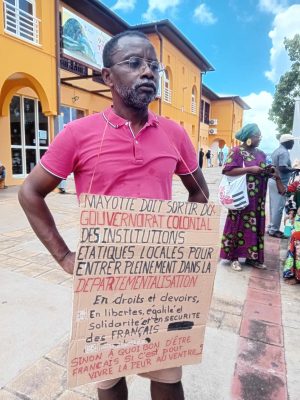 MAYOTTE DOIT SORTIR DU
GOUVERNORAT COLONIAL
DES INSTITUTIONS
ETATIQUES LOCALES POUR
ENTRER PLEINEMENT DANS LA
DEPARTEMENTALISATION
En droits et devoirs,
En libertés, égalité et
solidarité et en SECURITE
des FRANÇAIS
SINON A QUOI BON D'ÊTRE
FRANÇAIS SI C'EST POUR
VIVRE LA PEUR AU VENTRE!